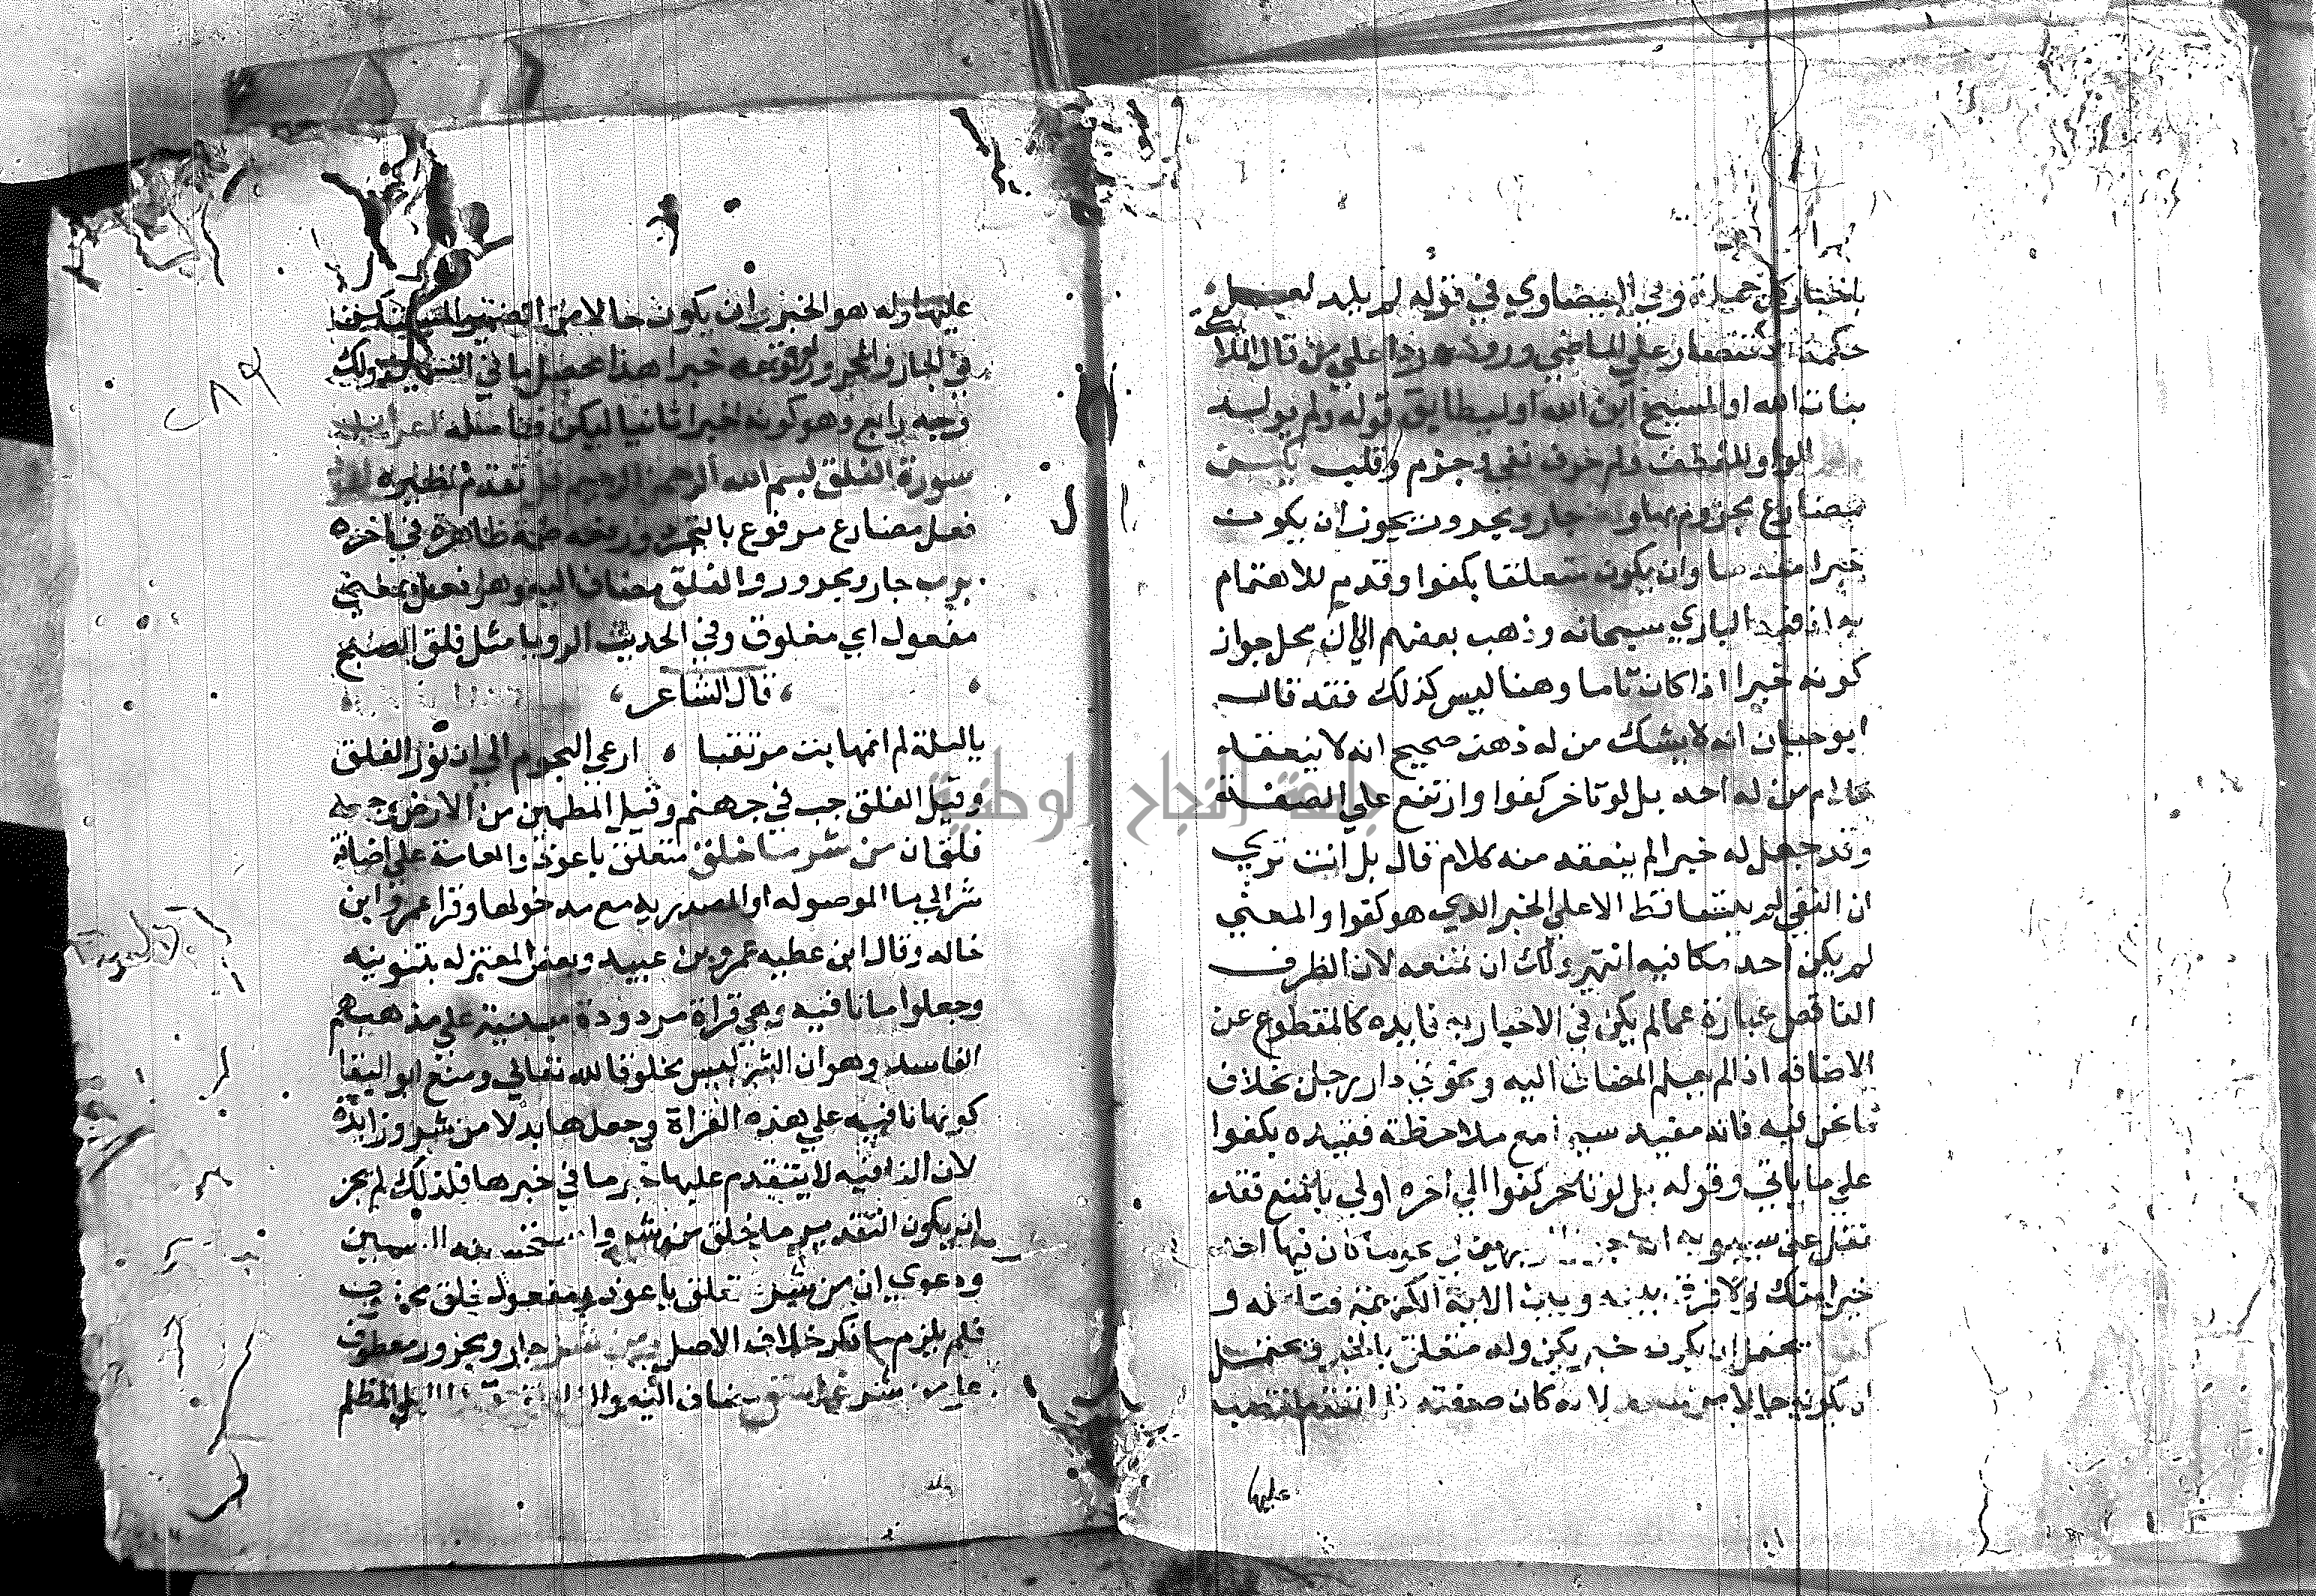 باختيار كل جملة وفي البيضاوي في قوله لم يلد لعله
حكمة الاقتصار على الماضي وروده ردا علي من قال الملا
بنات الله او المسيح ابن الله او ليطابق قوله ولم يولد
الواو للعطف ولم حرف نفي وجزم وقلب يكن
مضارع مجزوم بها وله جار ومجرور يجوز ان يكون
خبرا مقدما وان يكون متعلقا بكفوا وقدم للاهتمام
به اذ فيه الباري سبحانه وذهب بعضهم الي ان محل جواز
كونه خبرا اذا كان تاما وهنا ليس كذلك فقد قال
ابو حيان انه لا يشك من له ذهن صحيح انه لا ينعقد
كلام من له احد بل لو تاخر كفوا وارتفع علي الصفة
وقد جعل له خبرا لم ينعقد منه كلام قال بل انت تري
ان النفي لم يتسلط الا علي الخبر الذي هو كفوا والمعني
لم يكن احد مكافيه انتهي ولك ان تمنعه لان الظرف
الناقص عبارة عما لم يكن في الاخبار به فايده كالمقطوع عن
الاضافه اذ لم يعلم المضاف اليه ونحو في دار رجل بخلاف
ما نحن فيه فانه مفيد مع ملاحظة قيده بكفوا
علي ما ياتي وقوله بل لو تاخر كفوا الي اخره اولي بالمنع فقد
نقل عن سيبويه ما كان فيها احد
خيرا منك ولا فرق بينه وبين الاية الكريمة فتامله و
يحتمل ان يكون خبر يكن وله متعلق بالخبر ويحتمل
ان يكون حالا من لانه كان صفته فلما تقدم انتصب
عليها
عليها وله هو الخبر وان يكون حالا من الضمير المستكن
في الجار والمجرور لوقوعه خبرا هذا محصل ما في السمين ولك
وجه رابع وهو كونه خبرا ثانيا ليكن فتامله
سورة الفلق بسم الله الرحمن الرحيم قد تقدم نظيره
فعل مضارع مرفوع بالتجرد ورفعه ضمة ظاهرة في اخره
برب جار ومجرور والفلق مضاف اليه وهو فعل بمعني
مفعول اي مخلوق وفي الحديث الرويا مثل فلق الصبح
قال الشاعر
يا ليلة لم انمها بت مرتقبا ارعي النجوم الي ان نور الفلق
وقيل الفلق جب في جهنم وقيل المطمين من الارض وجمعه
فلقان من شر ما خلق متعلق باعوذ والعامة علي اضافة
شر الي ما الموصوله او المصدريه مع مدخولها وقرا عمرو ابن
خالد وقال ابن عطيه عمرو بن عبيد وبعض المعتزله بتنوينه
وجعلوا ما نافيه وهي قراة مردودة مبنية علي مذهبهم
الفاسد وهو ان الشر ليس مخلوقا لله تعالي ومنع ابو البقا
كونها نافيه علي هذه القراة وجعلها بدلا من شر وزايدة
لان النافيه لا يتقدم عليها خبر ما في خبرها فلذلك لم يجز
ان يكون التقدير ما خلق من شر واستحسنه السمين
ودعوي ان من شر تعلق باعوذ ومفعول خلق محذوف
فلم يلزم ما ذكر خلاف الاصل ومن شر جار ومجرور معطوف
علي من شر غاسق مضاف اليه الليل المظلم